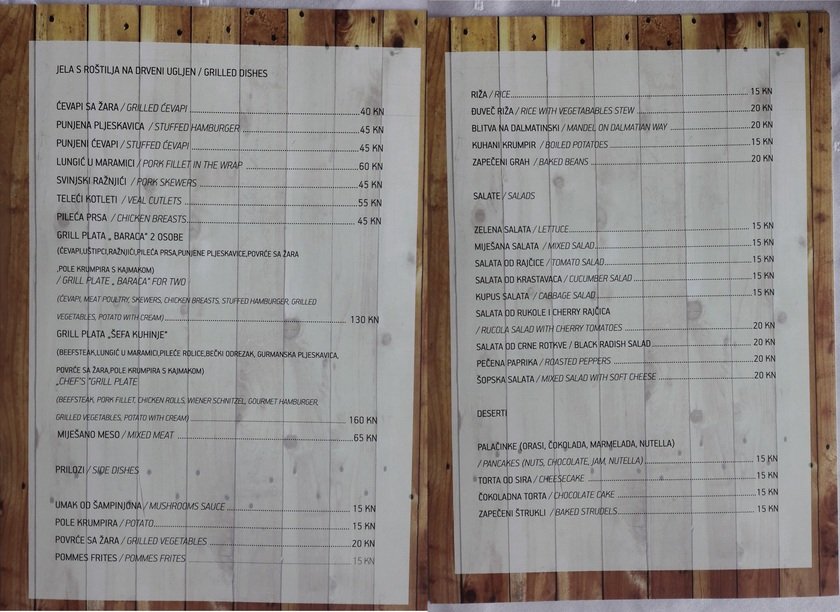 JELA S ROŠTILJA NA DRVENI UGLJEN / GRILLED DISHES
ĆEVAPI SA ŽARA / GRILLED ĆEVAPI 40 KN
PUNJENA PLJESKAVICA / STUFFED HAMBURGER 45 KN
PUNJENI ĆEVAPI / STUFFED ĆEVAPI 45 KN
LUNGIĆ U MARAMICI / PORK FILLET IN THE WRAP 60 KN
SVINJSKI RAŽNJIĆI / PORK SKEWERS 45 KN
TELEĆI KOTLETI / VEAL CUTLETS 55 KN
PILEĆA PRSA / CHICKEN BREASTS 45 KN
GRILL PLATA „ BARAĆA" 2 OSOBE
(ĆEVAPI,UŠTIPCI,RAŽNJIĆI,PILEĆA PRSA,PUNJENE PLJESKAVICE,POVRĆE SA ŽARA
,POLE KRUMPIRA S KAJMAKOM)
/ GRILL PLATE „ BARAĆA" FOR TWO
(ĆEVAPI, MEAT POULTRY, SKEWERS, CHICKEN BREASTS, STUFFED HAMBURGER, GRILLED
VEGETABLES, POTATO WITH CREAM) 130 KN
GRILL PLATA „ŠEFA KUHINJE"
(BEEFSTEAK,LUNGIĆ U MARAMICI,PILEĆE ROLICE,BEČKI ODREZAK, GURMANSKA PLJESKAVICA,
POVRĆE SA ŽARA,POLE KRUMPIRA S KAJMAKOM)
„CHEF'S "GRILL PLATE
(BEEFSTEAK, PORK FILLET, CHICKEN ROLLS, WIENER SCHNITZEL, GOURMET HAMBURGER,
GRILLED VEGETABLES, POTATO WITH CREAM) 160 KN
MIJEŠANO MESO / MIXED MEAT 65 KN
PRILOZI / SIDE DISHES
UMAK OD ŠAMPINJONA / MUSHROOMS SAUCE 15 KN
POLE KRUMPIRA / POTATO 15 KN
POVRĆE SA ŽARA / GRILLED VEGETABLES 20 KN
POMMES FRITES / POMMES FRITES 15 KN
RIŽA / RICE 15 KN
ĐUVEČ RIŽA / RICE WITH VEGETABABLES STEW 20 KN
BLITVA NA DALMATINSKI / MANDEL ON DALMATIAN WAY 20 KN
KUHANI KRUMPIR / BOILED POTATOES 15 KN
ZAPEČENI GRAH / BAKED BEANS 20 KN
SALATE / SALADS
ZELENA SALATA / LETTUCE 15 KN
MIJEŠANA SALATA / MIXED SALAD 15 KN
SALATA OD RAJČICE / TOMATO SALAD 15 KN
SALATA OD KRASTAVACA / CUCUMBER SALAD 15 KN
KUPUS SALATA / CABBAGE SALAD 15 KN
SALATA OD RUKOLE I CHERRY RAJČICA
/ RUCOLA SALAD WITH CHERRY TOMATOES 20 KN
SALATA OD CRNE ROTKVE / BLACK RADISH SALAD 20 KN
PEČENA PAPRIKA / ROASTED PEPPERS 20 KN
ŠOPSKA SALATA / MIXED SALAD WITH SOFT CHEESE 20 KN
DESERTI
PALAČINKE (ORASI, ČOKOLADA, MARMELADA, NUTELLA)
/ PANCAKES (NUTS, CHOCOLATE, JAM, NUTELLA) 15 KN
TORTA OD SIRA / CHEESECAKE 15 KN
ČOKOLADNA TORTA / CHOCOLATE CAKE 15 KN
ZAPEČENI ŠTRUKLI / BAKED STRUDELS 15 KN